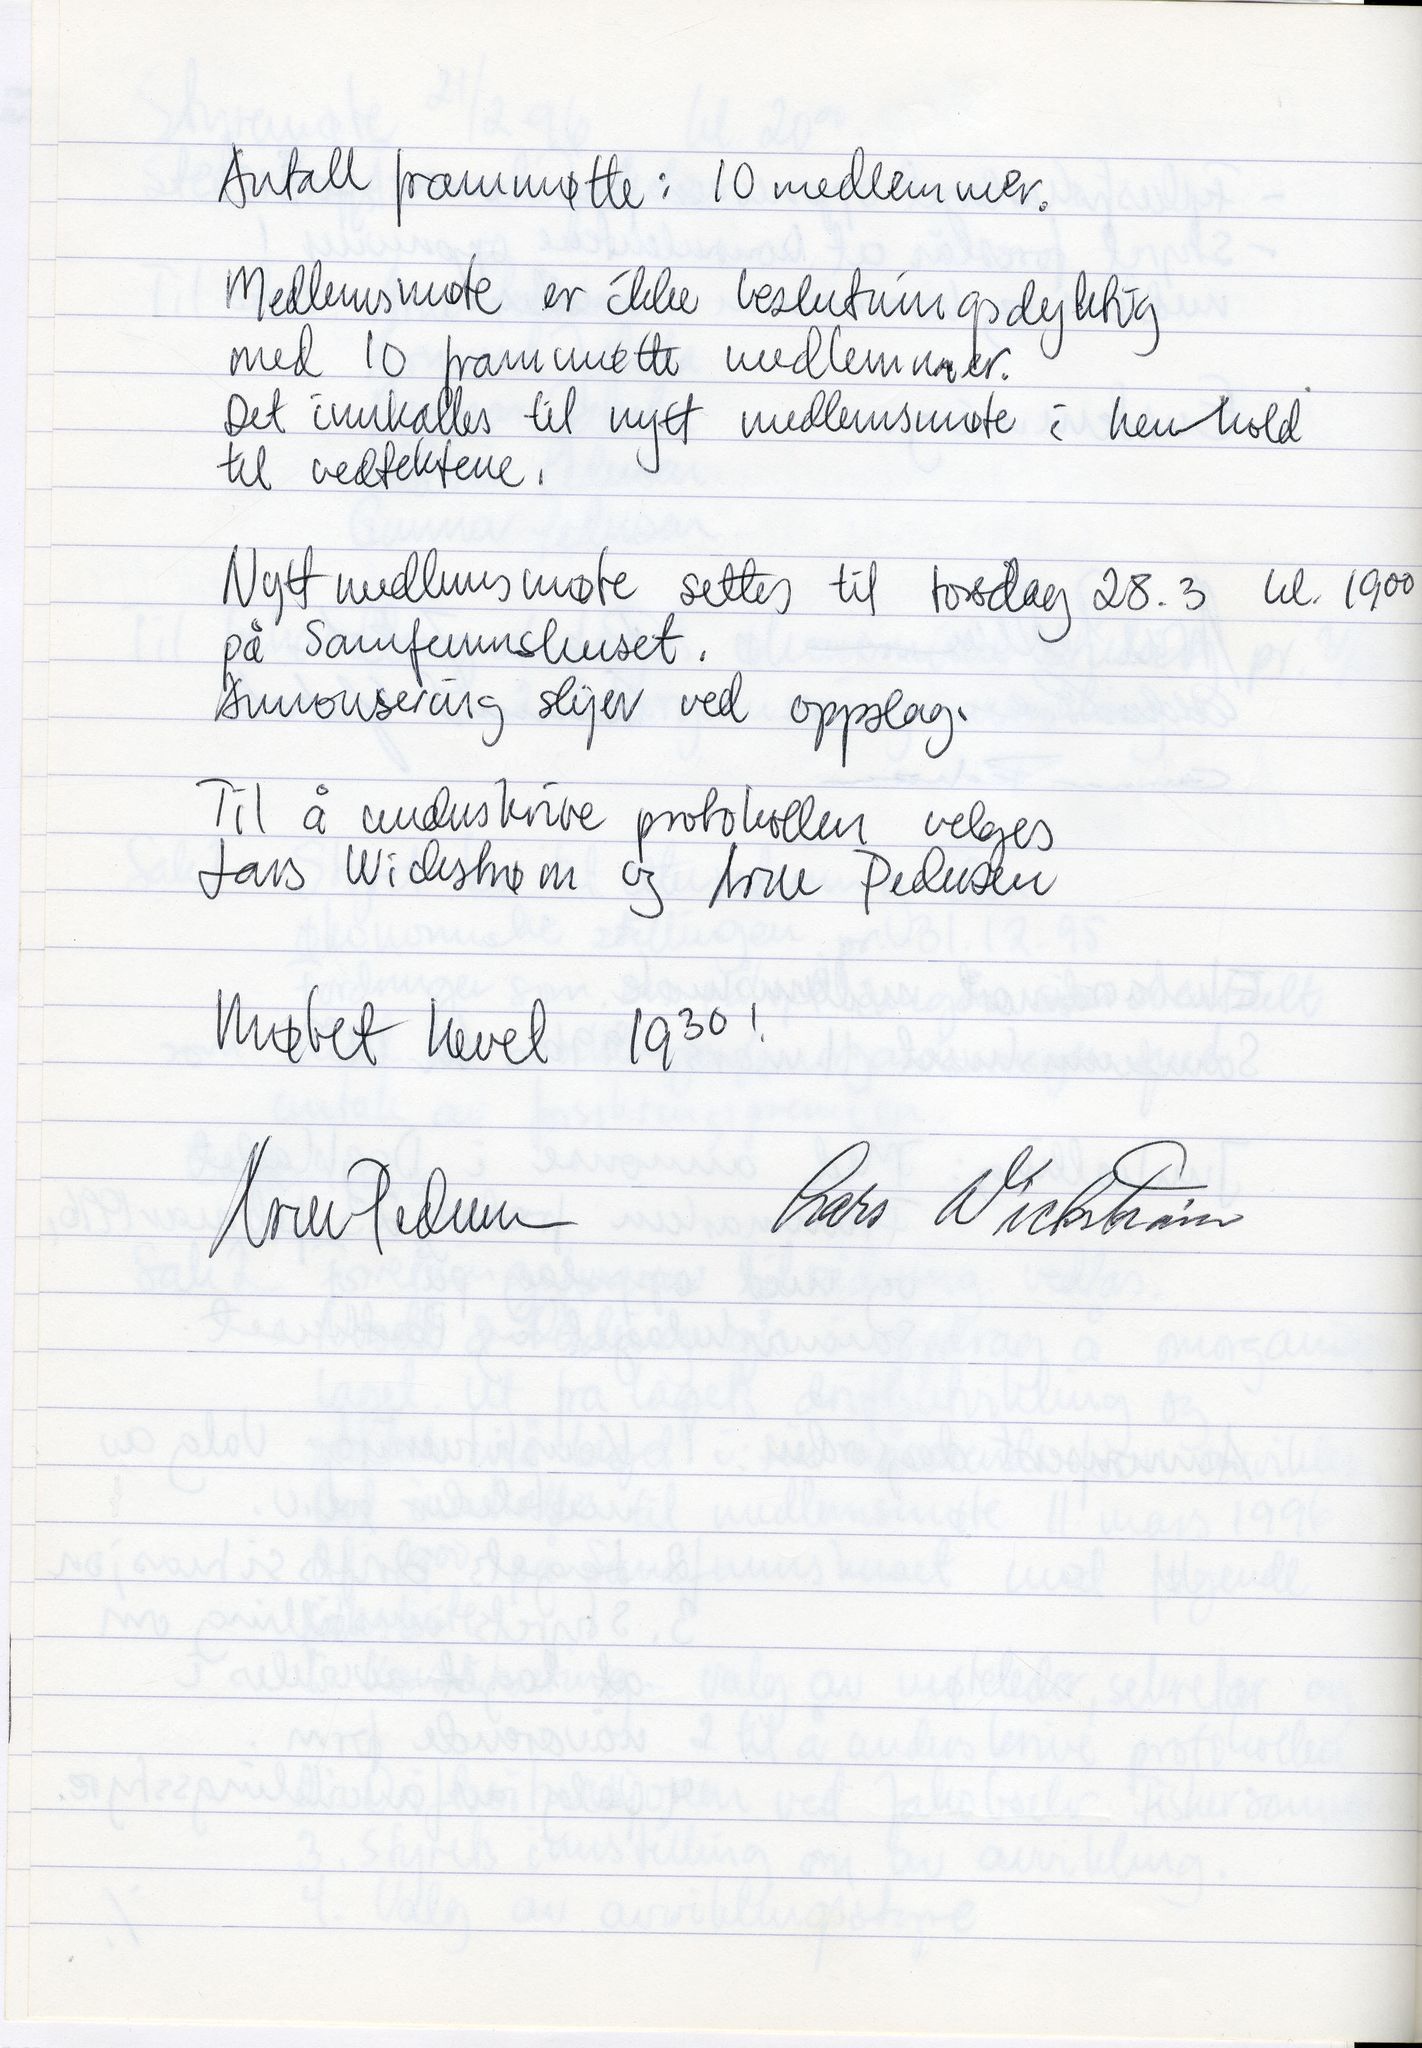 Antall frammøtte: 10 medlemmer.
Medlemsmøte er ikke beslutningsdyktig
med 10 frammøtte medlemmer.
Det innkalles til nytt medlemsmøte i henhold
til vedtektene.
Nytt medlemsmøte settes til torsdag 28.3 kl. 1900
på Samfunnshuset.
Annonsering skjer ved oppslag.
Til å underskrive protokollen velges
Lars Wickstrøm og Arne Pedersen
Møtet hevet 1930!
Arne Pedersen
Lars Wickstrøm